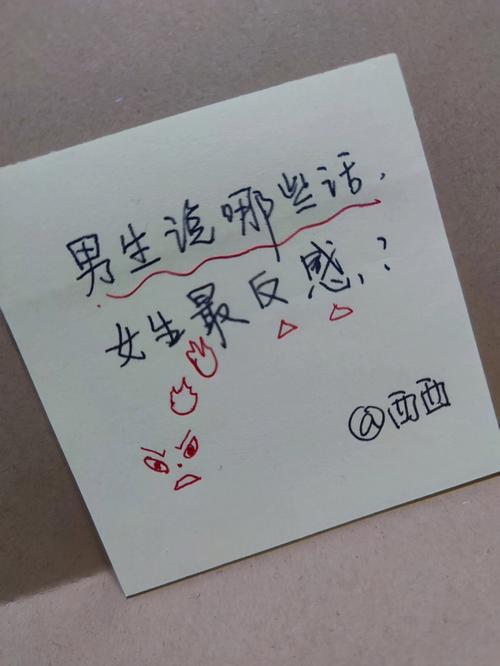 男生说哪些话,
女生最反感,?
@西西